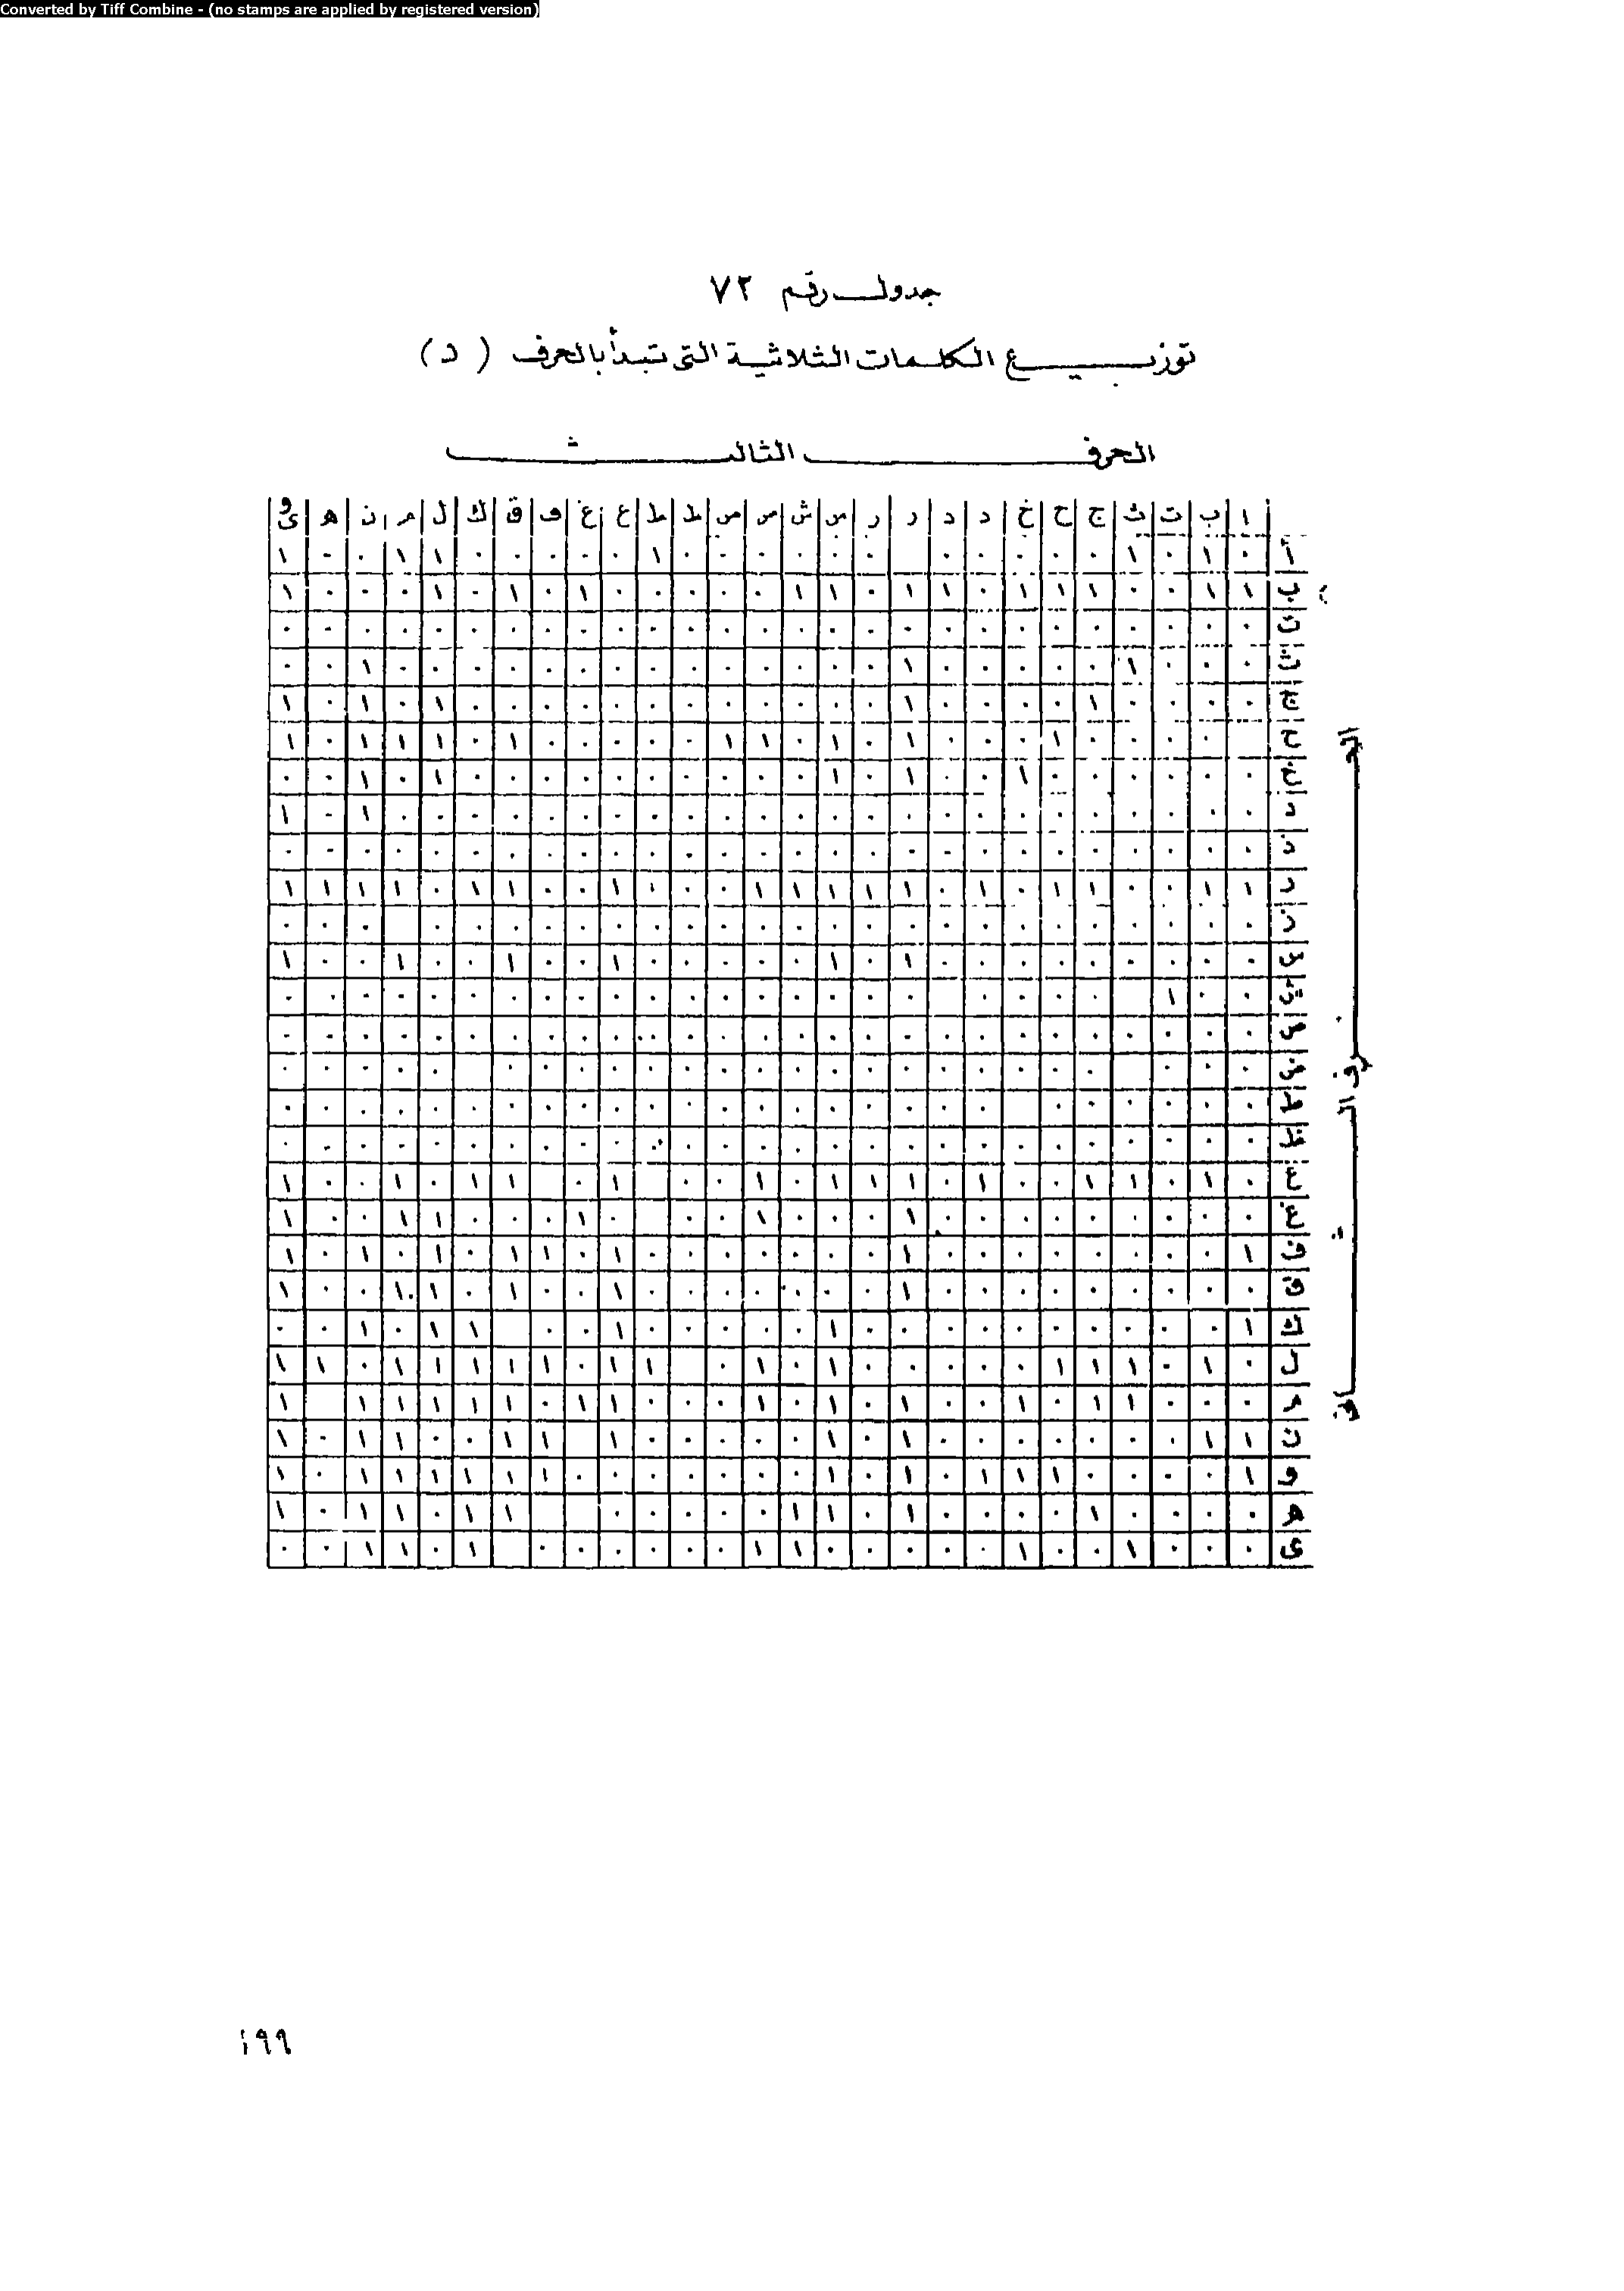 Converted by Tiff Combine - (no stamps are applied by registered version)
جدول رقم ٧٢
توزيع الكلمات الثلاثية التى تبدأ بالحرف ( د )
الحرف الثالث
ا ب ت ث ج ح خ د د ر ر س ش ص ص ط ط ع غ ف ق ك ل م ن ه و ى
أ ٠ ١ ٠ ١ ٠ ٠ ٠ ٠ ٠ ٠ ٠ ٠ ٠ ٠ ٠ ١ ٠ ٠ ٠ ٠ ٠ ١ ١ ٠ ٠ ١
ب ١ ١ ٠ ٠ ١ ١ ١ ٠ ١ ١ ٠ ١ ١ ٠ ٠ ٠ ٠ ٠ ١ ٠ ١ ٠ ١ ٠ ٠ ٠ ١
ت ٠ ٠ ٠ ٠ ٠ ٠ ٠ ٠ ٠ ٠ ٠ ٠ ٠ ٠ ٠ ٠ ٠ ٠ ٠ ٠ ٠ ٠ ٠ ٠ ٠ ٠ ٠
ث ٠ ٠ ٠ ١ ٠ ٠ ٠ ٠ ٠ ١ ٠ ٠ ٠ ٠ ٠ ٠ ٠ ٠ ٠ ٠ ٠ ٠ ٠ ٠ ١ ٠ ٠
ج ٠ ٠ ٠ ٠ ١ ٠ ٠ ٠ ٠ ١ ٠ ٠ ٠ ٠ ٠ ٠ ٠ ٠ ٠ ٠ ٠ ٠ ١ ٠ ١ ٠ ١
ح ٠ ٠ ٠ ٠ ١ ٠ ٠ ٠ ١ ٠ ١ ٠ ١ ١ ٠ ٠ ٠ ٠ ٠ ١ ٠ ١ ١ ١ ٠ ١
خ ٠ ٠ ٠ ٠ ٠ ٠ ١ ٠ ٠ ١ ٠ ١ ٠ ٠ ٠ ٠ ٠ ٠ ٠ ٠ ٠ ٠ ١ ٠ ١ ٠ ٠
د ٠ ٠ ٠ ٠ ٠ ٠ ٠ ٠ ٠ ٠ ٠ ٠ ٠ ٠ ٠ ٠ ٠ ٠ ٠ ٠ ٠ ٠ ٠ ٠ ١ ٠ ١
ذ ٠ ٠ ٠ ٠ ٠ ٠ ٠ ٠ ٠ ٠ ٠ ٠ ٠ ٠ ٠ ٠ ٠ ٠ ٠ ٠ ٠ ٠ ٠ ٠ ٠ ٠ ٠
ر ١ ١ ٠ ٠ ١ ١ ٠ ١ ٠ ١ ١ ١ ١ ١ ٠ ٠ ١ ١ ٠ ٠ ١ ١ ٠ ١ ١ ١ ١
ز ٠ ٠ ٠ ٠ ٠ ٠ ٠ ٠ ٠ ٠ ٠ ٠ ٠ ٠ ٠ ٠ ٠ ٠ ٠ ٠ ٠ ٠ ٠ ٠ ٠ ٠
س ٠ ٠ ٠ ٠ ٠ ٠ ٠ ٠ ٠ ١ ٠ ١ ٠ ٠ ٠ ٠ ٠ ١ ٠ ٠ ١ ٠ ٠ ١ ٠ ٠ ١
ش ٠ ٠ ١ ٠ ٠ ٠ ٠ ٠ ٠ ٠ ٠ ٠ ٠ ٠ ٠ ٠ ٠ ٠ ٠ ٠ ٠ ٠ ٠ ٠ ٠
ص ٠ ٠ ٠ ٠ ٠ ٠ ٠ ٠ ٠ ٠ ٠ ٠ ٠ ٠ ٠ ٠ ٠ ٠ ٠ ٠ ٠ ٠ ٠ ٠ ٠ ٠ ٠
ض ٠ ٠ ٠ ٠ ٠ ٠ ٠ ٠ ٠ ٠ ٠ ٠ ٠ ٠ ٠ ٠ ٠ ٠ ٠ ٠ ٠ ٠ ٠ ٠ ٠
ط ٠ ٠ ٠ ٠ ٠ ٠ ٠ ٠ ٠ ٠ ٠ ٠ ٠ ٠ ٠ ٠ ٠ ٠ ٠ ٠ ٠ ٠ ٠ ٠ ٠ ٠
ظ ٠ ٠ ٠ ٠ ٠ ٠ ٠ ٠ ٠ ٠ ٠ ٠ ٠ ٠ ٠ ٠ ٠ ٠ ٠ ٠ ٠ ٠ ٠ ٠ ٠ ٠ ٠
ع ٠ ١ ٠ ١ ١ ٠ ٠ ١ ٠ ١ ١ ١ ٠ ١ ٠ ٠ ١ ٠ ١ ١ ٠ ١ ٠ ٠ ١
غ ٠ ٠ ٠ ٠ ٠ ٠ ٠ ٠ ٠ ١ ٠ ٠ ٠ ١ ٠ ٠ ٠ ١ ٠ ٠ ٠ ١ ١ ٠ ٠ ١
ف ١ ٠ ٠ ٠ ٠ ٠ ٠ ٠ ٠ ١ ٠ ٠ ٠ ٠ ٠ ٠ ٠ ١ ٠ ١ ١ ٠ ١ ٠ ١ ٠ ١
ق ٠ ٠ ٠ ٠ ٠ ٠ ٠ ٠ ٠ ١ ٠ ٠ ٠ ٠ ٠ ٠ ٠ ١ ٠ ٠ ١ ٠ ١ ١ ٠ ٠ ١
ك ١ ٠ ٠ ٠ ٠ ٠ ٠ ٠ ٠ ٠ ٠ ١ ٠ ٠ ٠ ٠ ٠ ١ ٠ ٠ ١ ١ ٠ ١ ٠ ٠
ل ٠ ١ ٠ ١ ١ ١ ٠ ٠ ٠ ٠ ٠ ١ ٠ ١ ٠ ١ ١ ٠ ١ ١ ١ ١ ١ ٠ ١ ١
م ٠ ٠ ٠ ١ ١ ٠ ١ ٠ ٠ ١ ٠ ١ ٠ ١ ٠ ٠ ٠ ١ ١ ٠ ١ ١ ١ ١ ١ ١
ن ١ ١ ٠ ٠ ٠ ٠ ٠ ٠ ٠ ١ ٠ ١ ٠ ٠ ٠ ٠ ٠ ١ ١ ١ ٠ ٠ ١ ١ ٠ ١
و ١ ٠ ٠ ٠ ٠ ١ ١ ١ ٠ ١ ٠ ١ ٠ ٠ ٠ ٠ ٠ ٠ ٠ ١ ١ ١ ١ ١ ١ ٠ ١
ه ٠ ٠ ٠ ٠ ١ ٠ ٠ ٠ ٠ ١ ٠ ١ ١ ٠ ٠ ٠ ٠ ٠ ١ ١ ٠ ١ ١ ٠ ١
ى ٠ ٠ ٠ ١ ٠ ٠ ١ ٠ ٠ ٠ ٠ ٠ ١ ١ ٠ ٠ ٠ ٠ ٠ ٠ ١ ٠ ١ ١ ٠ ٠
الحرف الثانى
١٩٩